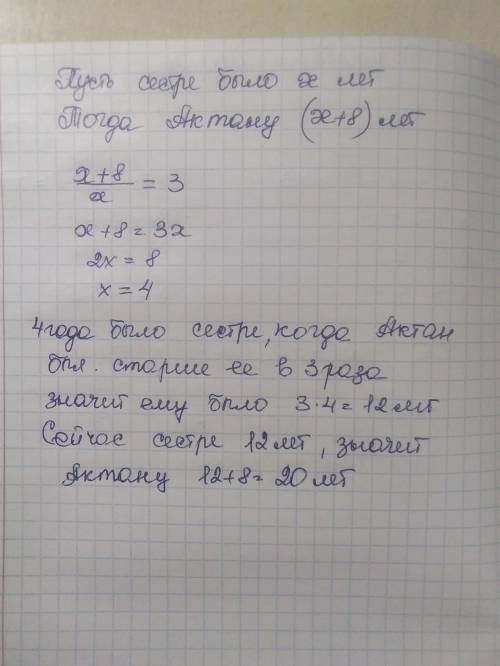 Пусть сестре было x лет
Тогда Актану (x+8) лет
x+8/x = 3
x+8=3x
2x=8
x=4
4 года было сестре, когда Актан
был. старше ее в 3 раза
значит ему было 3·4=12 лет
Сейчас сестре 12 лет, значит
Актану 12+8=20 лет